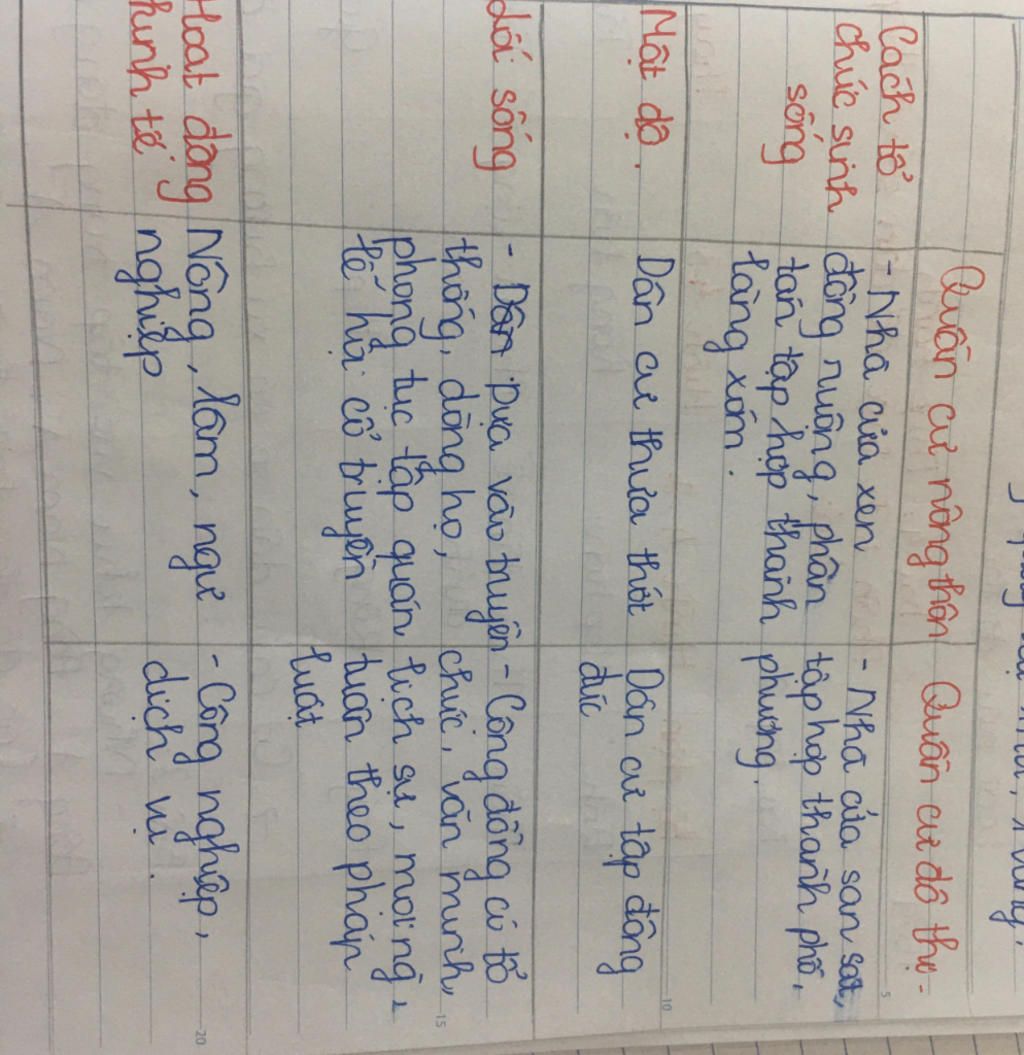 Quần cư nông thôn Quần cư đô thị.
Cách tổ
chức sinh
sống
- Nhà cửa xen
đồng ruộng, phân
tán tập hợp thành
làng xóm.
- Nhà cửa san sát,
tập hợp thành phố,
phường.
Mật độ.
Dân cư thưa thớt
Dân cư tập đông
đúc
Lối sống
- Dân Dựa vào truyền
thống, dòng họ,
phong tục tập quán
lễ hội cổ truyền
- Cộng đồng có tổ
chức, văn minh,
lịch sự, mọi ng`
tuân theo pháp
luật
Hoạt động
kinh tế
Nông, lâm, ngư
nghiệp
- Công nghiệp,
dịch vụ.
5
10
15
20